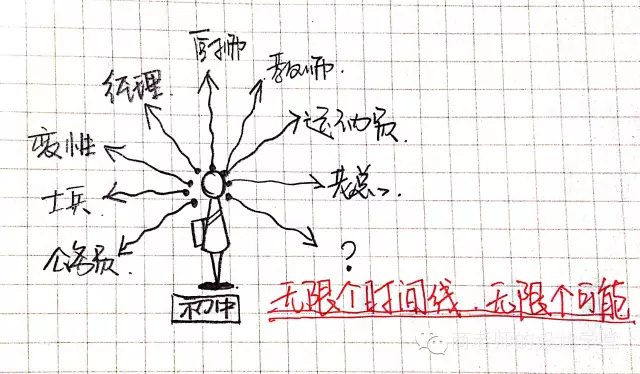 厨师
教师.
经理.
运动员.
变性
老总、
士兵
公务员.
?
无限个时间线.无限个可能
初中